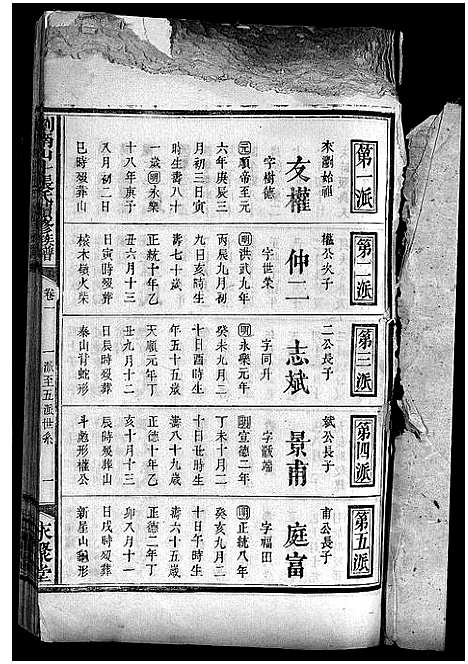 第一派
來瀏始祖
友權
字樹德
元順帝至元
六年庚辰三
月初三日寅
時生壽八十
一歲明永樂
十八年庚子
八月初二日
巳時歿葬山
第二派
權公次子
仲二
字世榮
明洪武九年
丙辰九月初
九日亥時生
壽七十歲
正統十年乙
丑六月十三
日寅時歿葬
樣木嶺火柴
第三派
二公長子
志斌
字同升
明永樂元年
癸未九月二
十日酉時生
年五十五歲
天順元年丁
丑九月十二
日辰時歿葬
泰山背蛇形
第四派
斌公長子
景甫
明宣德二年
丁未十月二
壽八十九歲
正德十年乙
亥十月十三
辰時歿葬山
斗形權公
第五派
甫公長子
庭富
字福田
明正統八年
癸亥九月二
十日午時生
壽六十五歲
正德二年丁
卯八月十一
日戌時歿葬
新屋山形
修族譜
卷一
一派至五派世系
一
聚堂